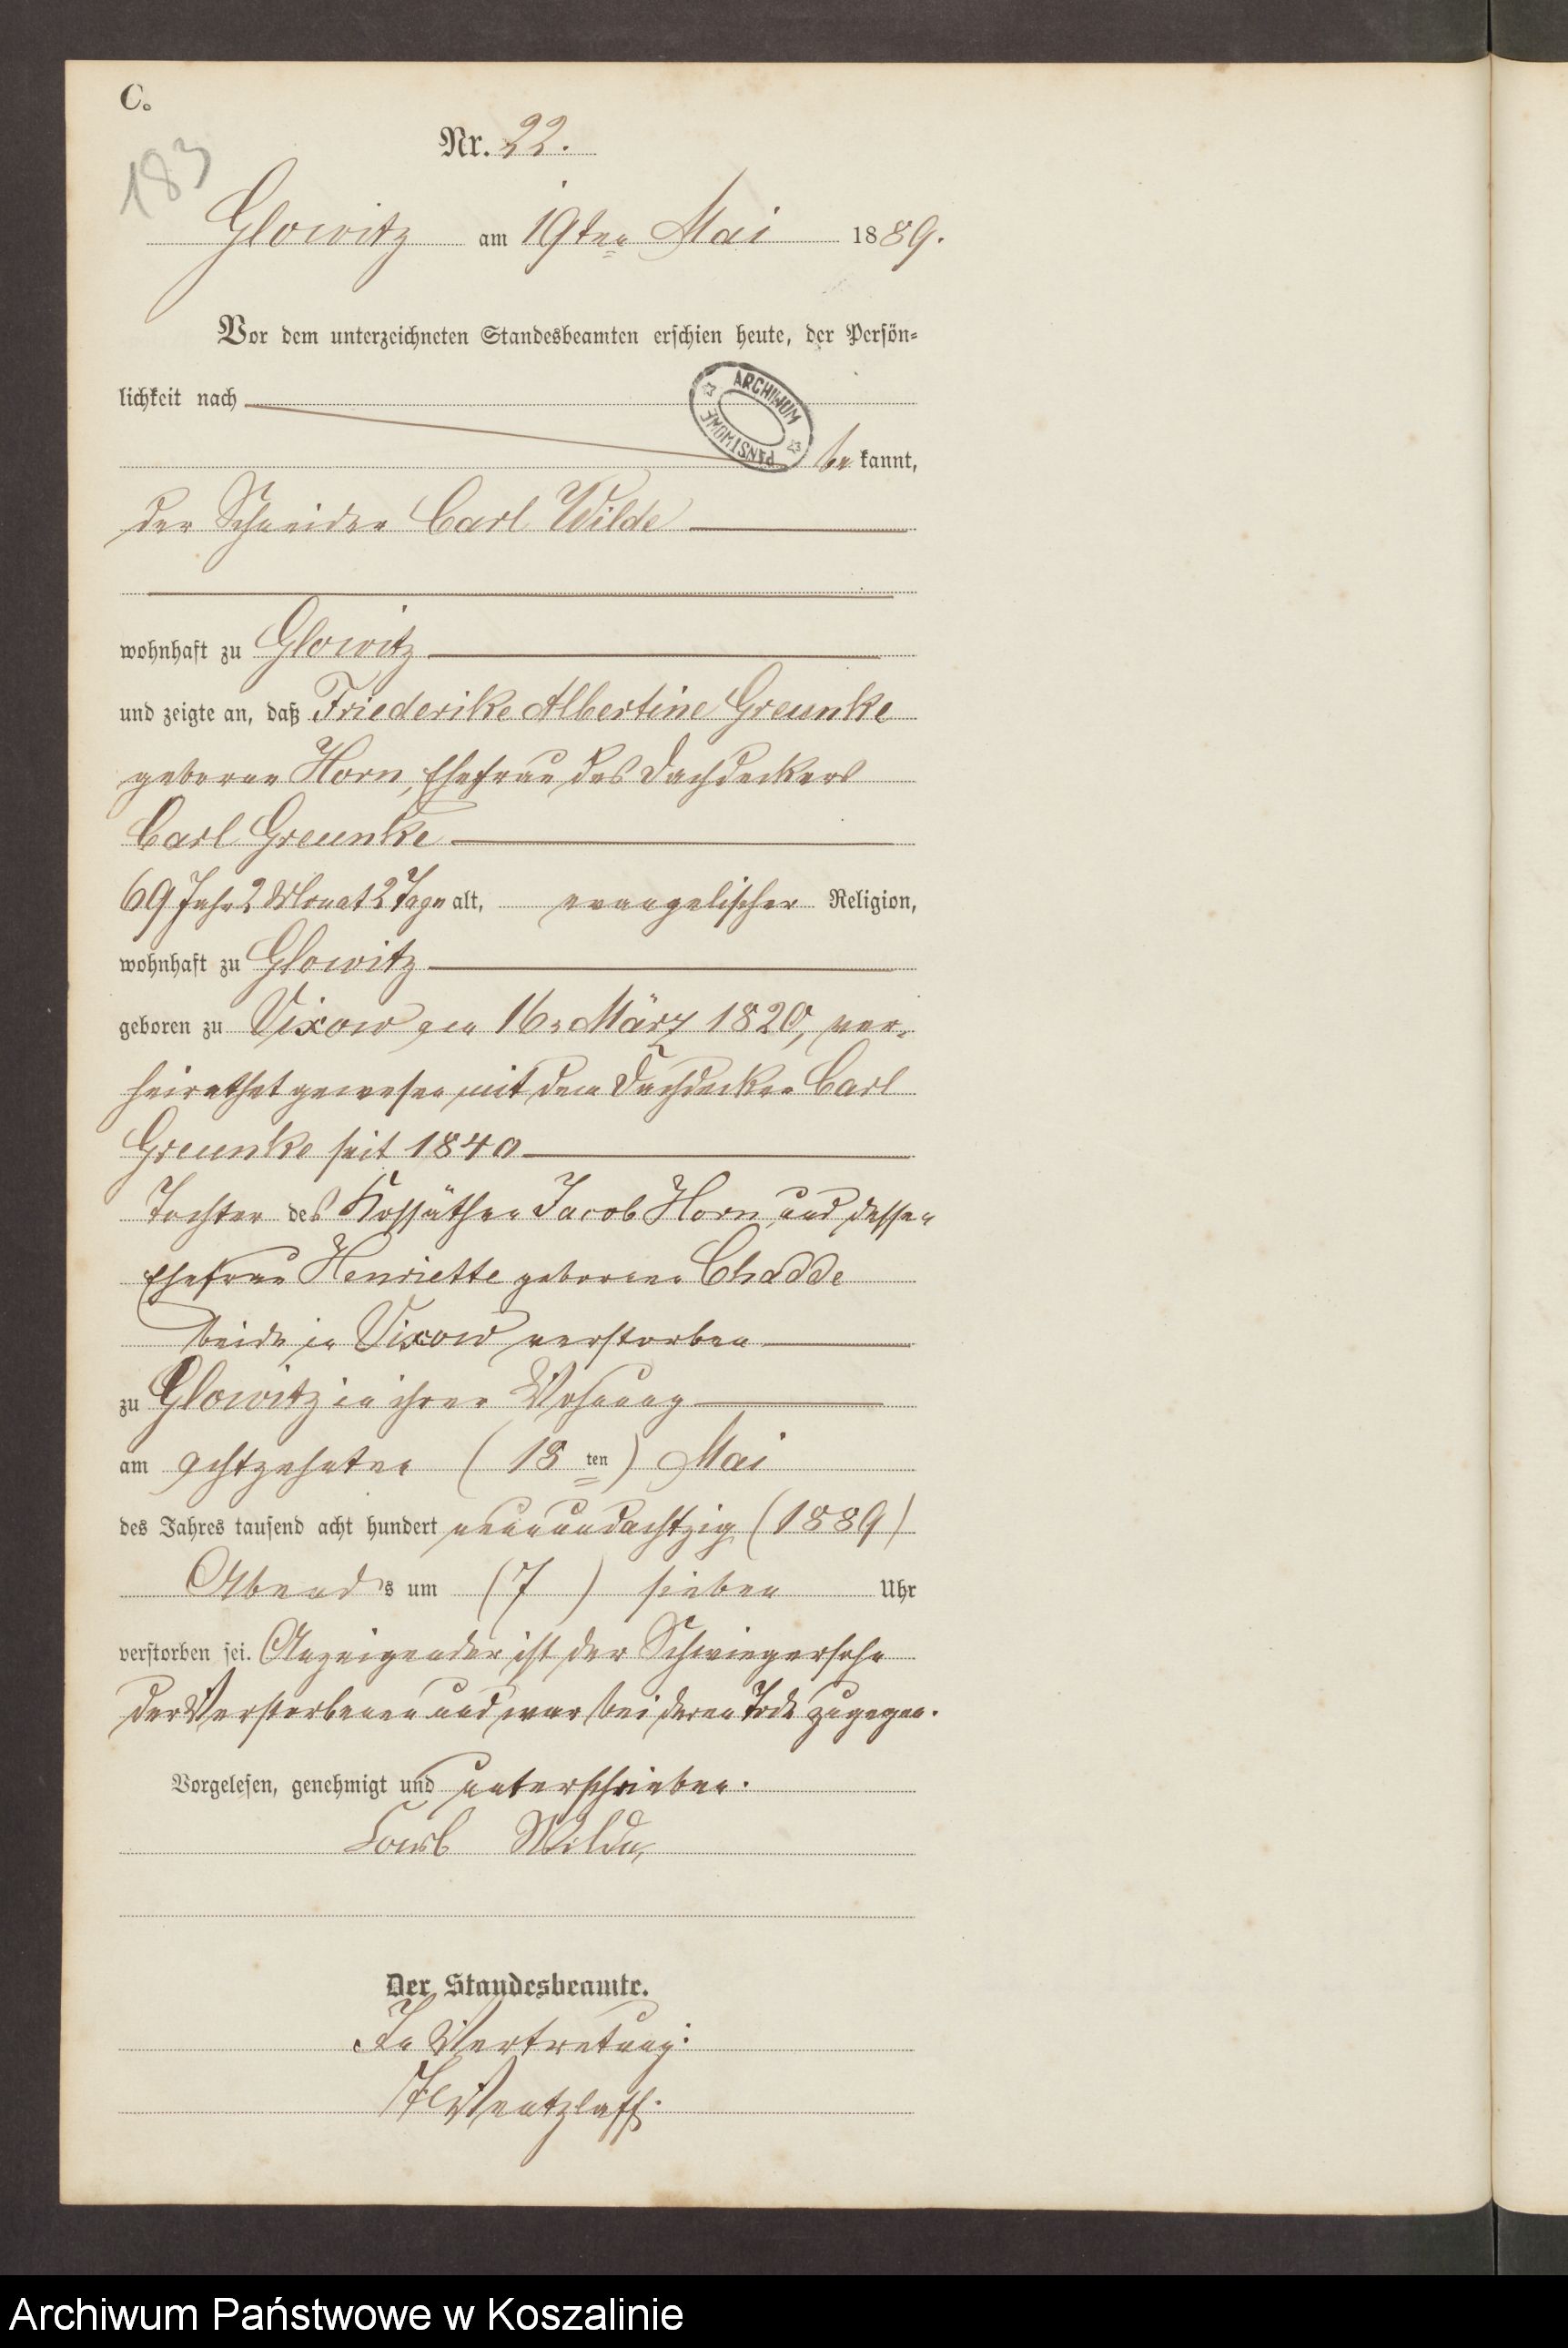 C.
183
Nr. 22.
Glowitz am 19ten Mai 1889.
Vor dem unterzeichneten Standesbeamten erschien heute, der Persön-
lichkeit nach
ARCHIWUM PAŃSTWOWE
be kannt,
der Schneider Carl Wilde
wohnhaft zu Glowitz
und zeigte an, daß Friederike Albertine Greunke
geborne Horn, Ehefrau des Dachdeckers
Carl Greunke
69 Jahr 2 Monat 2 Tage alt, evangelischer Religion,
wohnhaft zu Glowitz
geboren zu Vixow am 16. März 1820, ver-
heirathet gewesen mit dem Dachdecker Carl
Greunke seit 1840
Tochter des Kossäthen Jacob Horn und dessen
Ehefrau Henriette geborene Chadde
beide in Vixow verstorben
zu Glowitz in ihrer Wohnung
am achtzehnten (18 ten) Mai
des Jahres tausend acht hundert neunundachtzig (1889)
Abends um (7) sieben Uhr
verstorben sei. Anzeigender ist der Schwiegersohn
der Verstorbenen und war bei deren Tode zugegen.
Vorgelesen, genehmigt und unterschrieben.
Carl Wilde
Der Standesbeamte.
In Vertretung:
Wentzlaff.
Archiwum Państwowe w Koszalinie